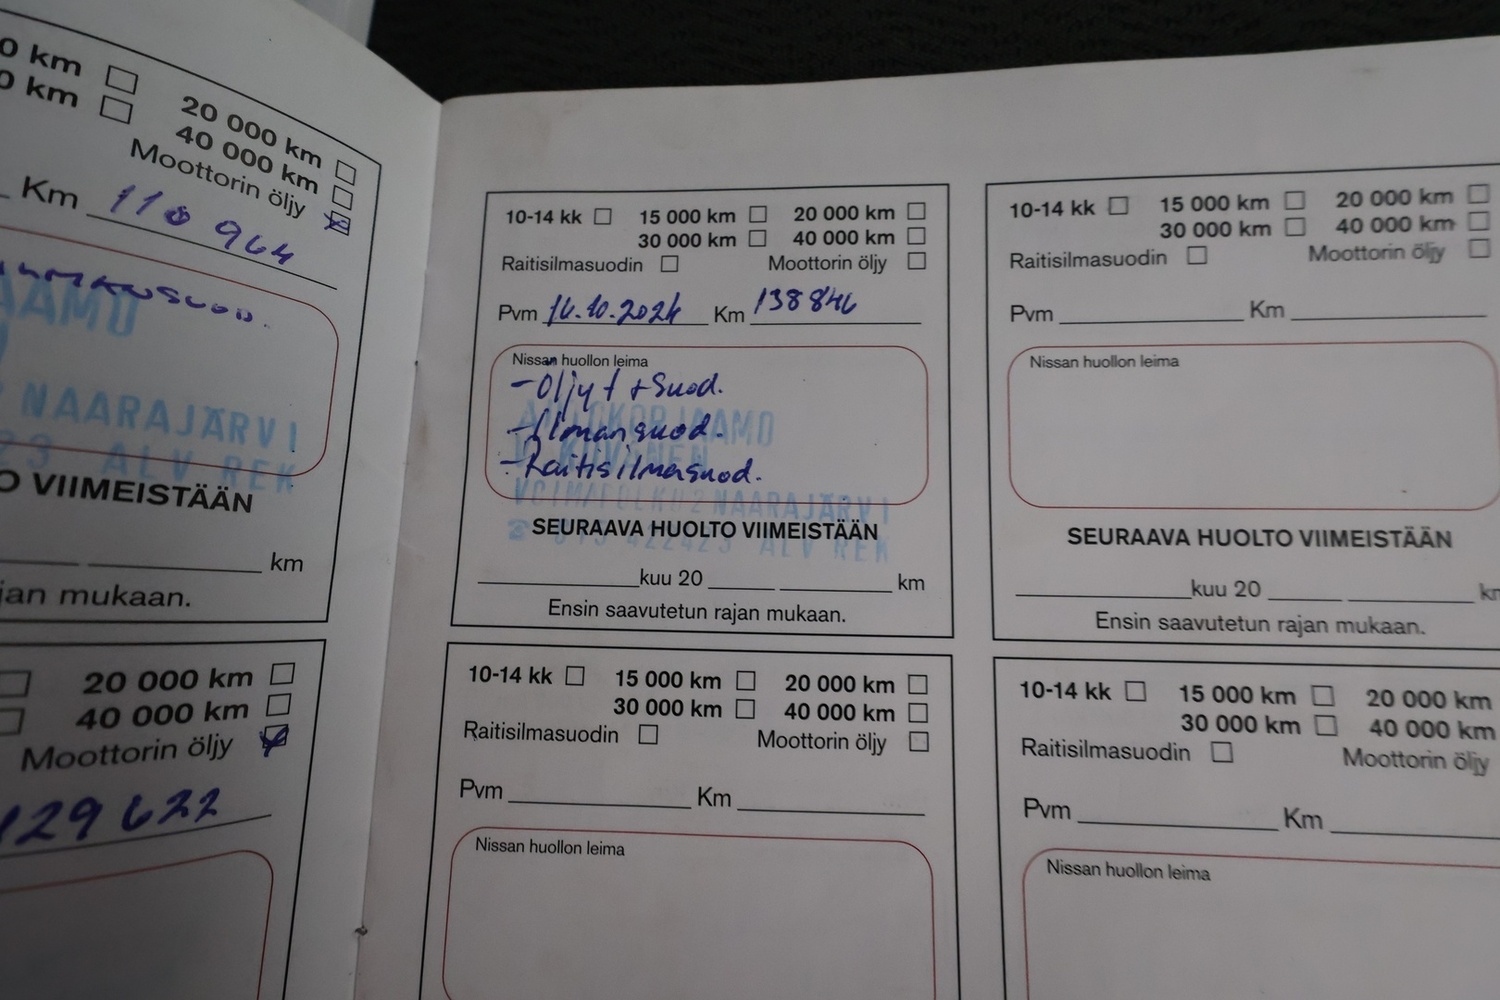 0 km
0 km
20 000 km
40 000 km
Moottorin öljy
Km 110 964
NAARAJÄRVI
ALV REK
O VIIMEISTÄÄN
km
jan mukaan.
20 000 km
40 000 km
Moottorin öljy
129 622
10-14 kk 15 000 km 20 000 km
30 000 km 40 000 km
Raitisilmasuodin Moottorin öljy
Pvm Km 138 846
Nissan huollon leima
-Öljyt + Suod.
-Ilmansuod.
-Raitisilmasuod.
AUTOKORJAAMO
NAARAJÄRVI
ALV REK
SEURAAVA HUOLTO VIIMEISTÄÄN
kuu 20 km
Ensin saavutetun rajan mukaan.
10-14 kk 15 000 km 20 000 km
30 000 km 40 000 km
Raitisilmasuodin Moottorin öljy
Pvm Km
Nissan huollon leima
SEURAAVA HUOLTO VIIMEISTÄÄN
kuu 20 km
Ensin saavutetun rajan mukaan.
10-14 kk 15 000 km 20 000 km
30 000 km 40 000 km
Raitisilmasuodin Moottorin öljy
Pvm Km
Nissan huollon leima
10-14 kk 15 000 km 20 000 km
30 000 km 40 000 km
Raitisilmasuodin Moottorin öljy
Pvm Km
Nissan huollon leima